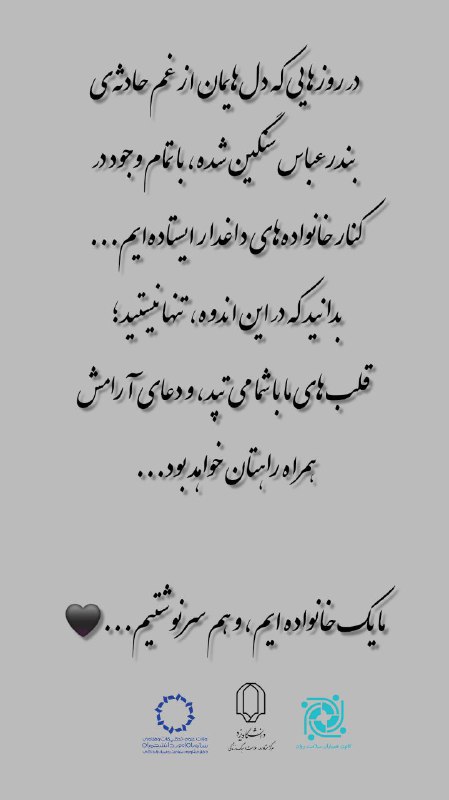 در روزهایی که دل‌هایمان از غم حادثه‌ی
بندرعباس سنگین شده، با تمام وجود در
کنار خانواده‌های داغدار ایستاده‌ایم...
بدانید که در این اندوه، تنها نیستید؛
قلب‌های ما با شما می‌تپد، و دعای آرامش
همراه راهتان خواهد بود...
ما یک خانواده ایم، و هم سرنوشتیم...🖤
دانشگاه یزد